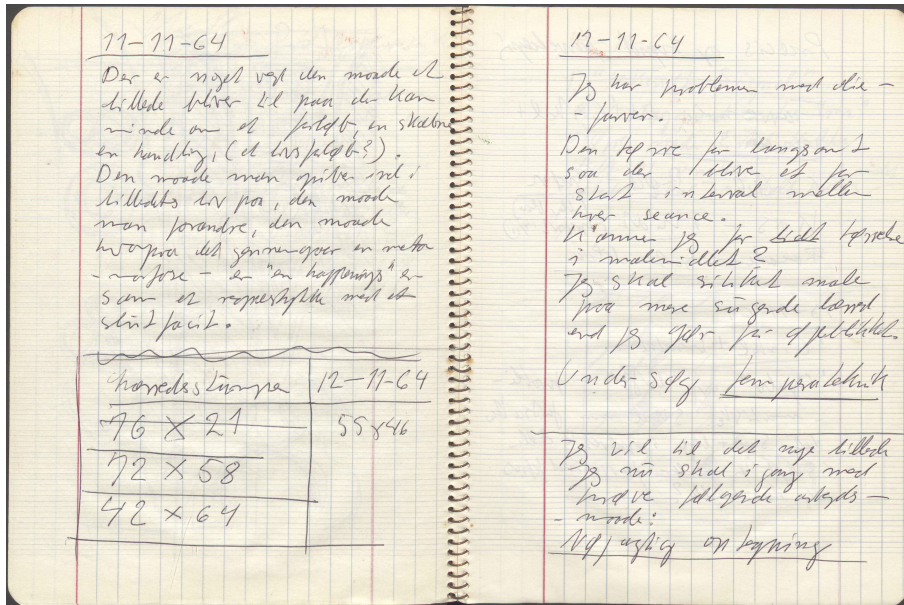 11-11-64
Der er noget ved den maade et
billede bliver til paa der kan
minde om et forløb, en skæbne
en handling, (et livsforløb?).
Den maade man griber ind i
billedets liv paa, den maade
man forandre, den maade
hvorpaa det gennemgaar en meta
-morfose - er "en happenings" er
som et regnestykke med et
slut facit.
Lærredsstumper
12-11-64
76 x 21
55 x 46
72 x 58
42 x 64
12-11-64
Jeg har problemer med olie-
-farver.
Den tørre for langsomt
saa der blive et for
stort interval mellem
hver seance.
Kommer jeg for lidt tørrelse
i malemidlet?
Jeg skal sikkert male
paa mere sugende lærred
end jeg gør for øjeblikket.
Undersøg temperateknik
Jeg vil til det nye billede
Jeg nu skal i gang med
prøve følgende arbejds-
-maade:
Nøjagtig optegning